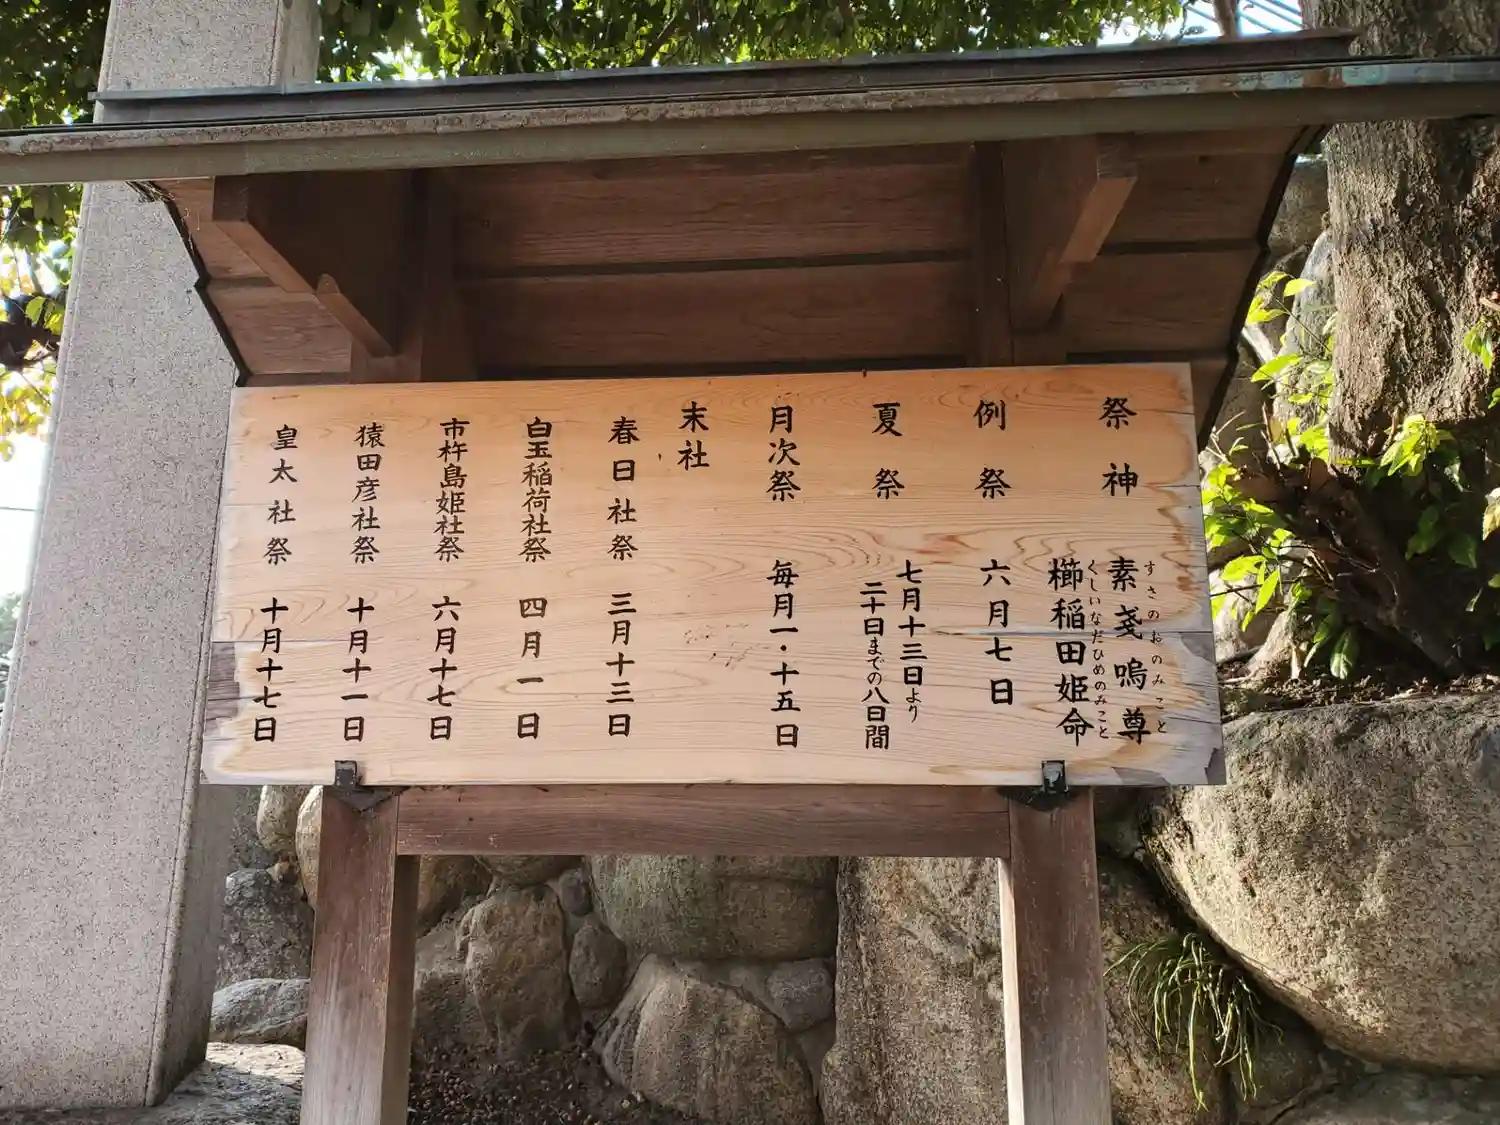 祭神
素戔嗚尊
すさのおのみこと
櫛稲田姫命
くしいなだひめのみこと
例祭 六月七日
夏祭 七月十三日より
二十日までの八日間
月次祭 毎月一・十五日
末社
春日社祭 三月十三日
白玉稲荷社祭 四月一日
市杵島姫社祭 六月十七日
猿田彦社祭 十月十一日
皇太社祭 十月十七日